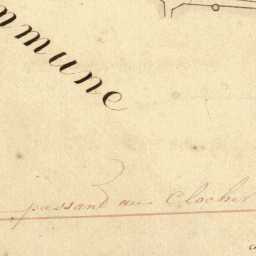 mmune
passant au Clocher